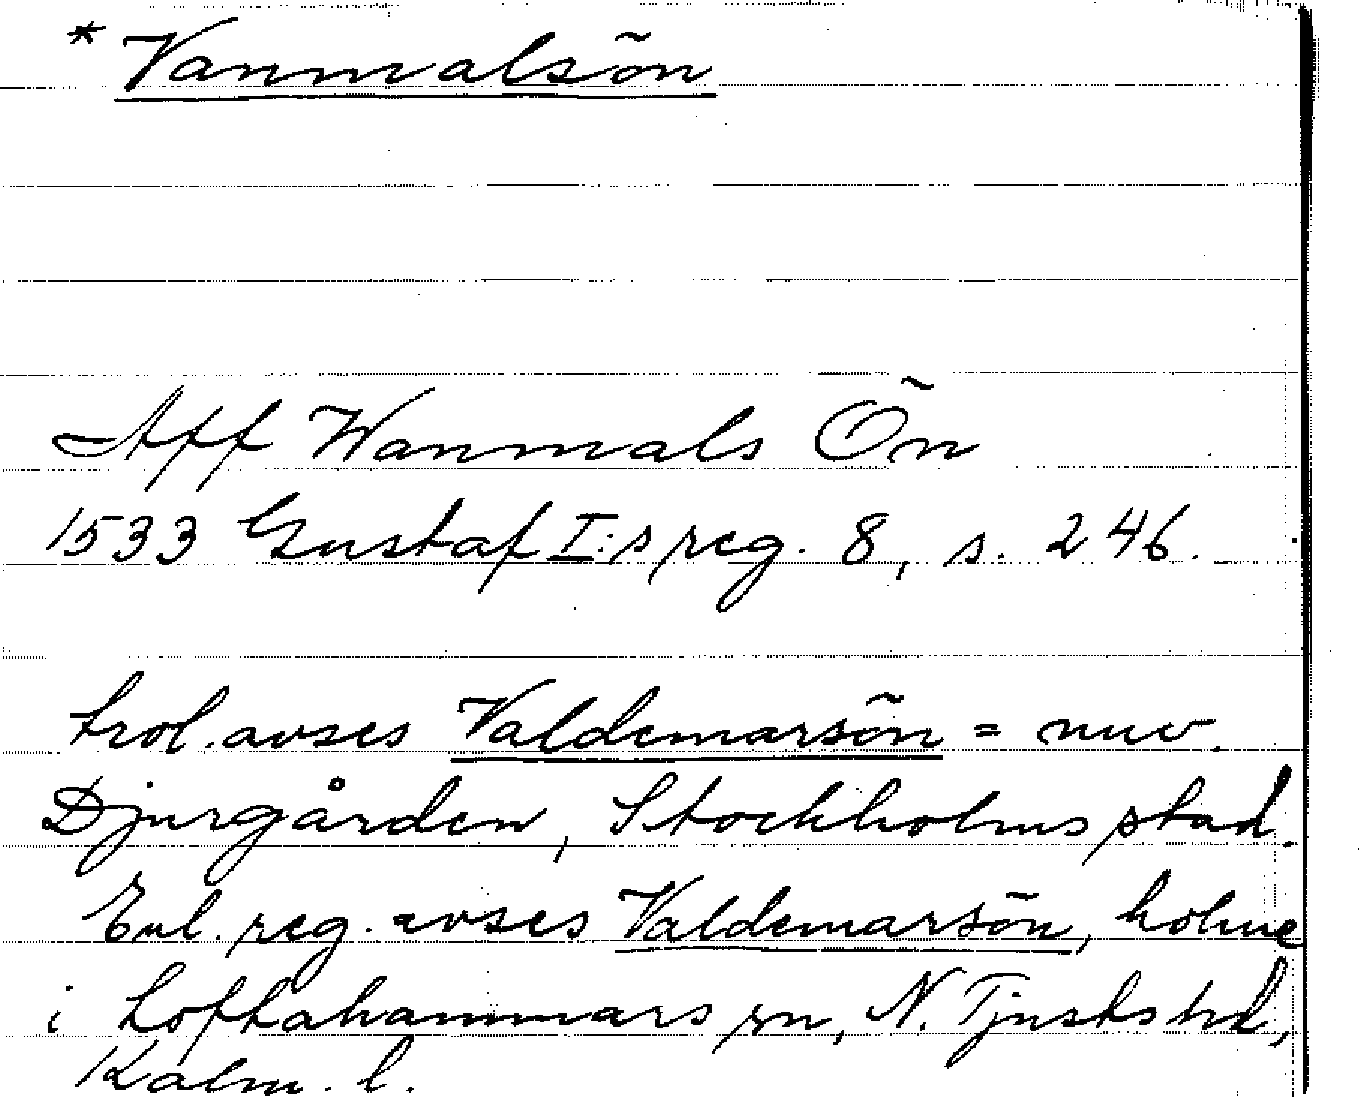 * Vanmalsön
Aff Wanmals Ön
1533 Gustaf I:s reg. 8, s. 246.
trol. avses Valdemarsön = nuv.
Djurgården, Stockholms stad.
Enl. reg. avses Valdemarsön, holme
i Loftahammars sn, N. Tjusts hd,
Kalm. l.